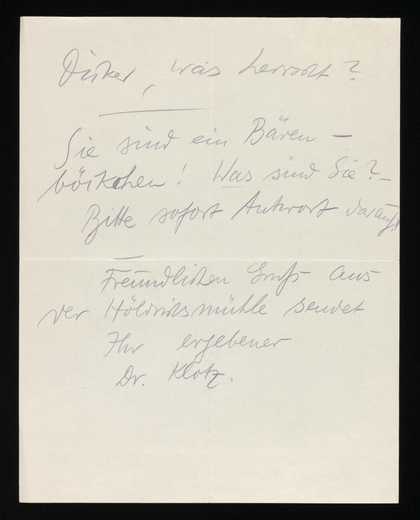 was herrscht?
Sie sind ein Bären –
böckchen! Was sind Sie? –
Bitte sofort Antwort darauf!
Freundlichen Gruß aus
der Höldrichsmühle sendet
Ihr ergebener
Dr. Klotz.